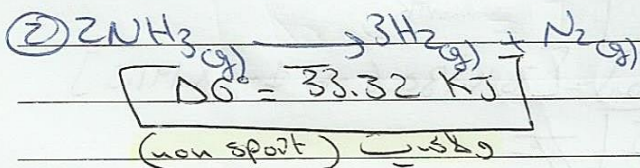 ② 2NH3(g) → 3H2(g) + N2(g)
ΔG° = 33.32 KJ
(non spont)